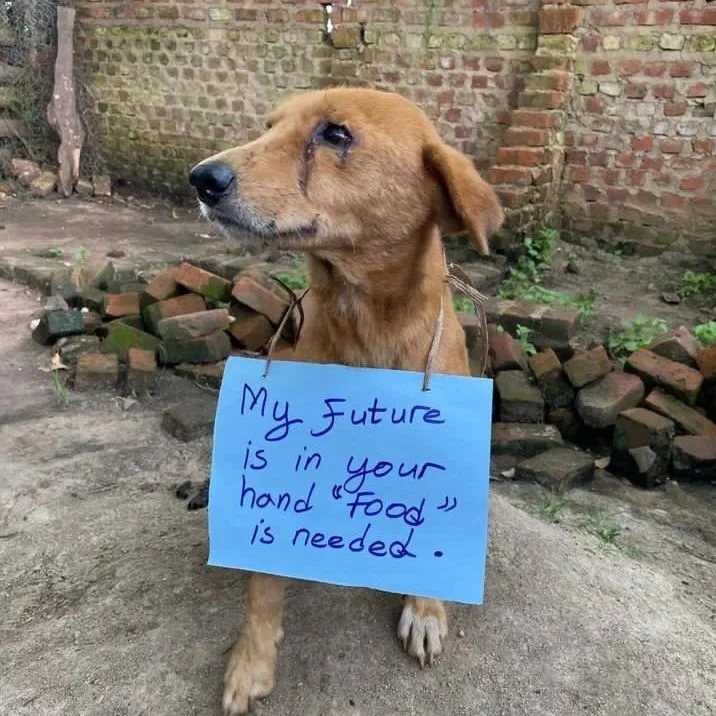 My Future
is in your
hand "Food"
is needed.